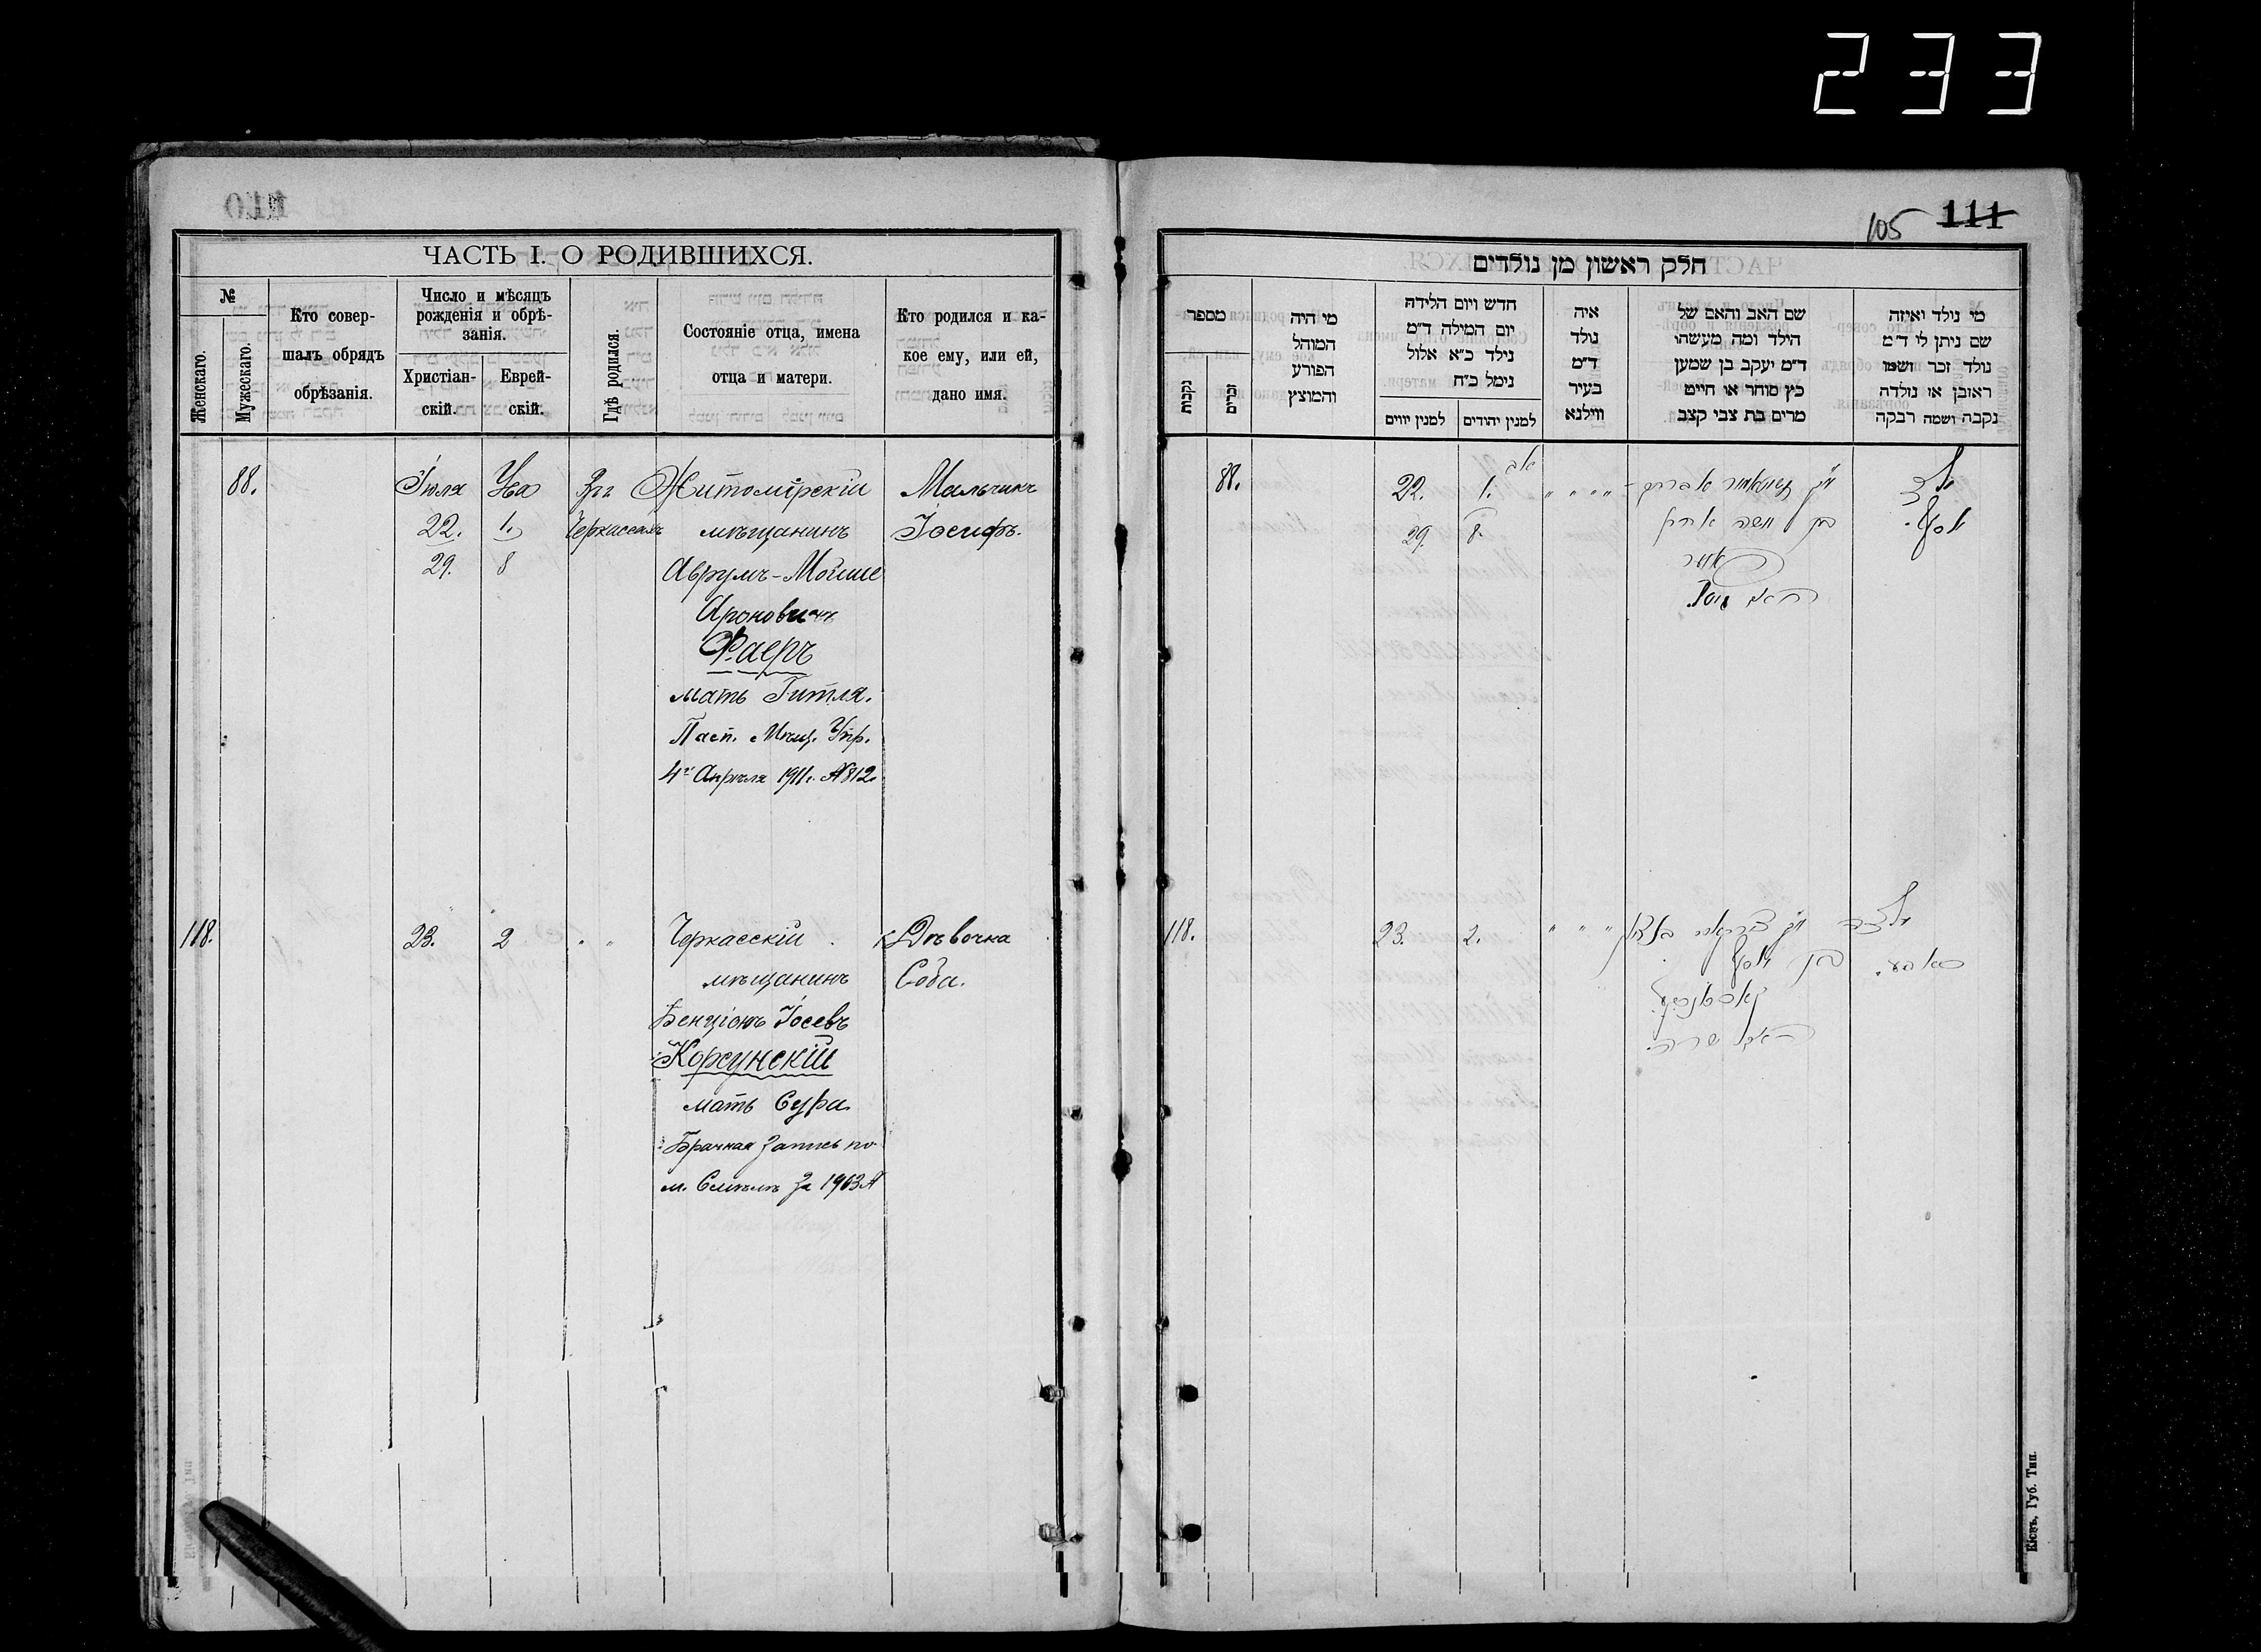 233
ЧАСТЬ I. О РОДИВШИХСЯ.
№
Женскаго.
Мужескаго.
Кто совер-
шалъ обрядъ
обрѣзанія.
Число и мѣсяцъ
рожденія и обрѣ-
занія.
Христіан-
скій.
Еврей-
скій.
Гдѣ родился.
Состояніе отца, имена
отца и матери.
Кто родился и ка-
кое ему, или ей,
дано имя.
88. Іюля 1. Житомірскій Мальчикъ
22. Черкассахъ мѣщанинъ Іосифъ.
29. 8 Аврумъ-Мойше
Ароновичъ
Фаеръ
мать Гитля.
Пасп. Мѣщ. Упр.
4го Апрѣля 1911г. №812.
118. 23. 2 " " Черкасскій Дѣвочка
мѣщанинъ Соба.
Бенціонъ Іосевъ
Корсунскій
мать Сура
Брачная запись по
м. Смѣлѣ за 1903 №
105 111
חלק ראשון מן נולדים
מספר
נקבות
זכרים
מי היה
המוהל
הפורע
והמוצץ
חדש ויום הלידה
יום המילה ד״מ
נילד כ״א אלול
נימל כ״ח
למנין יווים
למנין יהודים
איה
נולד
ד״מ
בעיר
ווילנא
שם האב והאם של
הילד ומה מעשהו
ד״מ יעקב בן שמען
כץ סוחר או חייט
מרים בת צבי קצב
מי נולד ואיזה
שם ניתן לו ד״מ
נולד זכר ושמו
ראובן או נולדה
נקבה ושמה רבקה
88. 22. 1. אב " " " "
29. 8. בן משה אהרן יוסף.
118. 23. 2. " " "
בן יוסף
האם שרה.
Кіевъ, Губ. Тип.